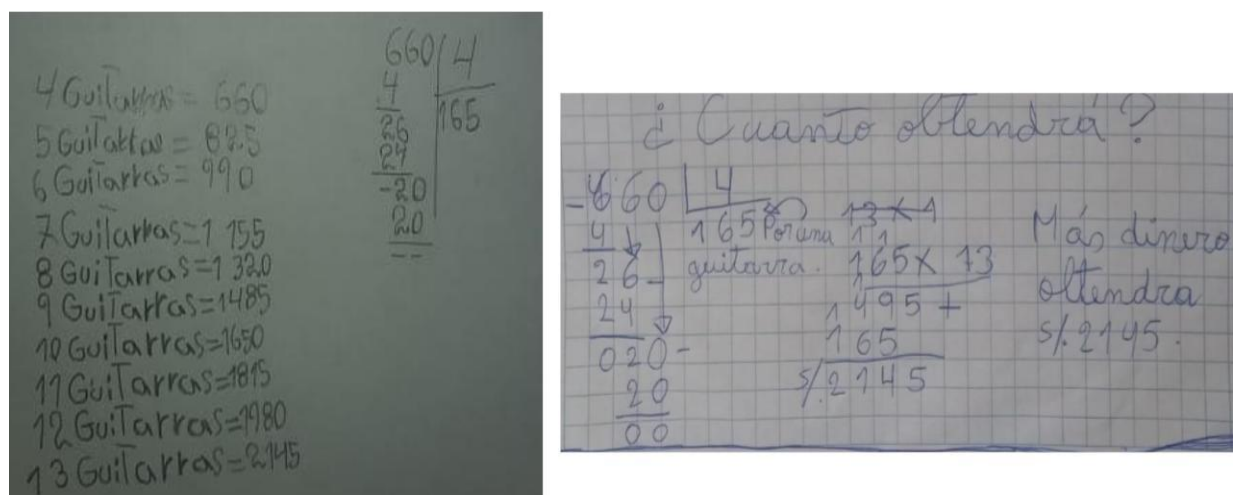 4 Guitarras = 660
5 Guitarras = 825
6 Guitarras = 990
7 Guitarras = 1 155
8 Guitarras = 1 320
9 Guitarras = 1485
10 Guitarras = 1650
11 Guitarras = 1815
12 Guitarras = 1980
13 Guitarras = 2145
660 4
4 165
26
24
-20
20
--
¿Cuanto obtendrá?
-660 4
4 165 Por una guitarra.
26-
24
020-
20
00
13 x 4
11
165 x 13
495 +
165
s/. 2145
Más dinero
obtendra
s/. 2145.